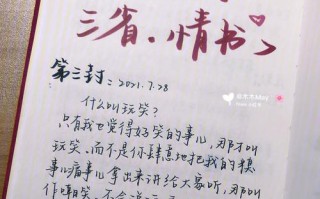 三省·情书
第三封：2021.7.28
什么叫玩笑？
只有我也觉得好笑的事儿，那才叫
玩笑。而不是你肆意地把我的糗
事儿痛事儿拿出来讲给大家听，那叫
作嘲笑。不会